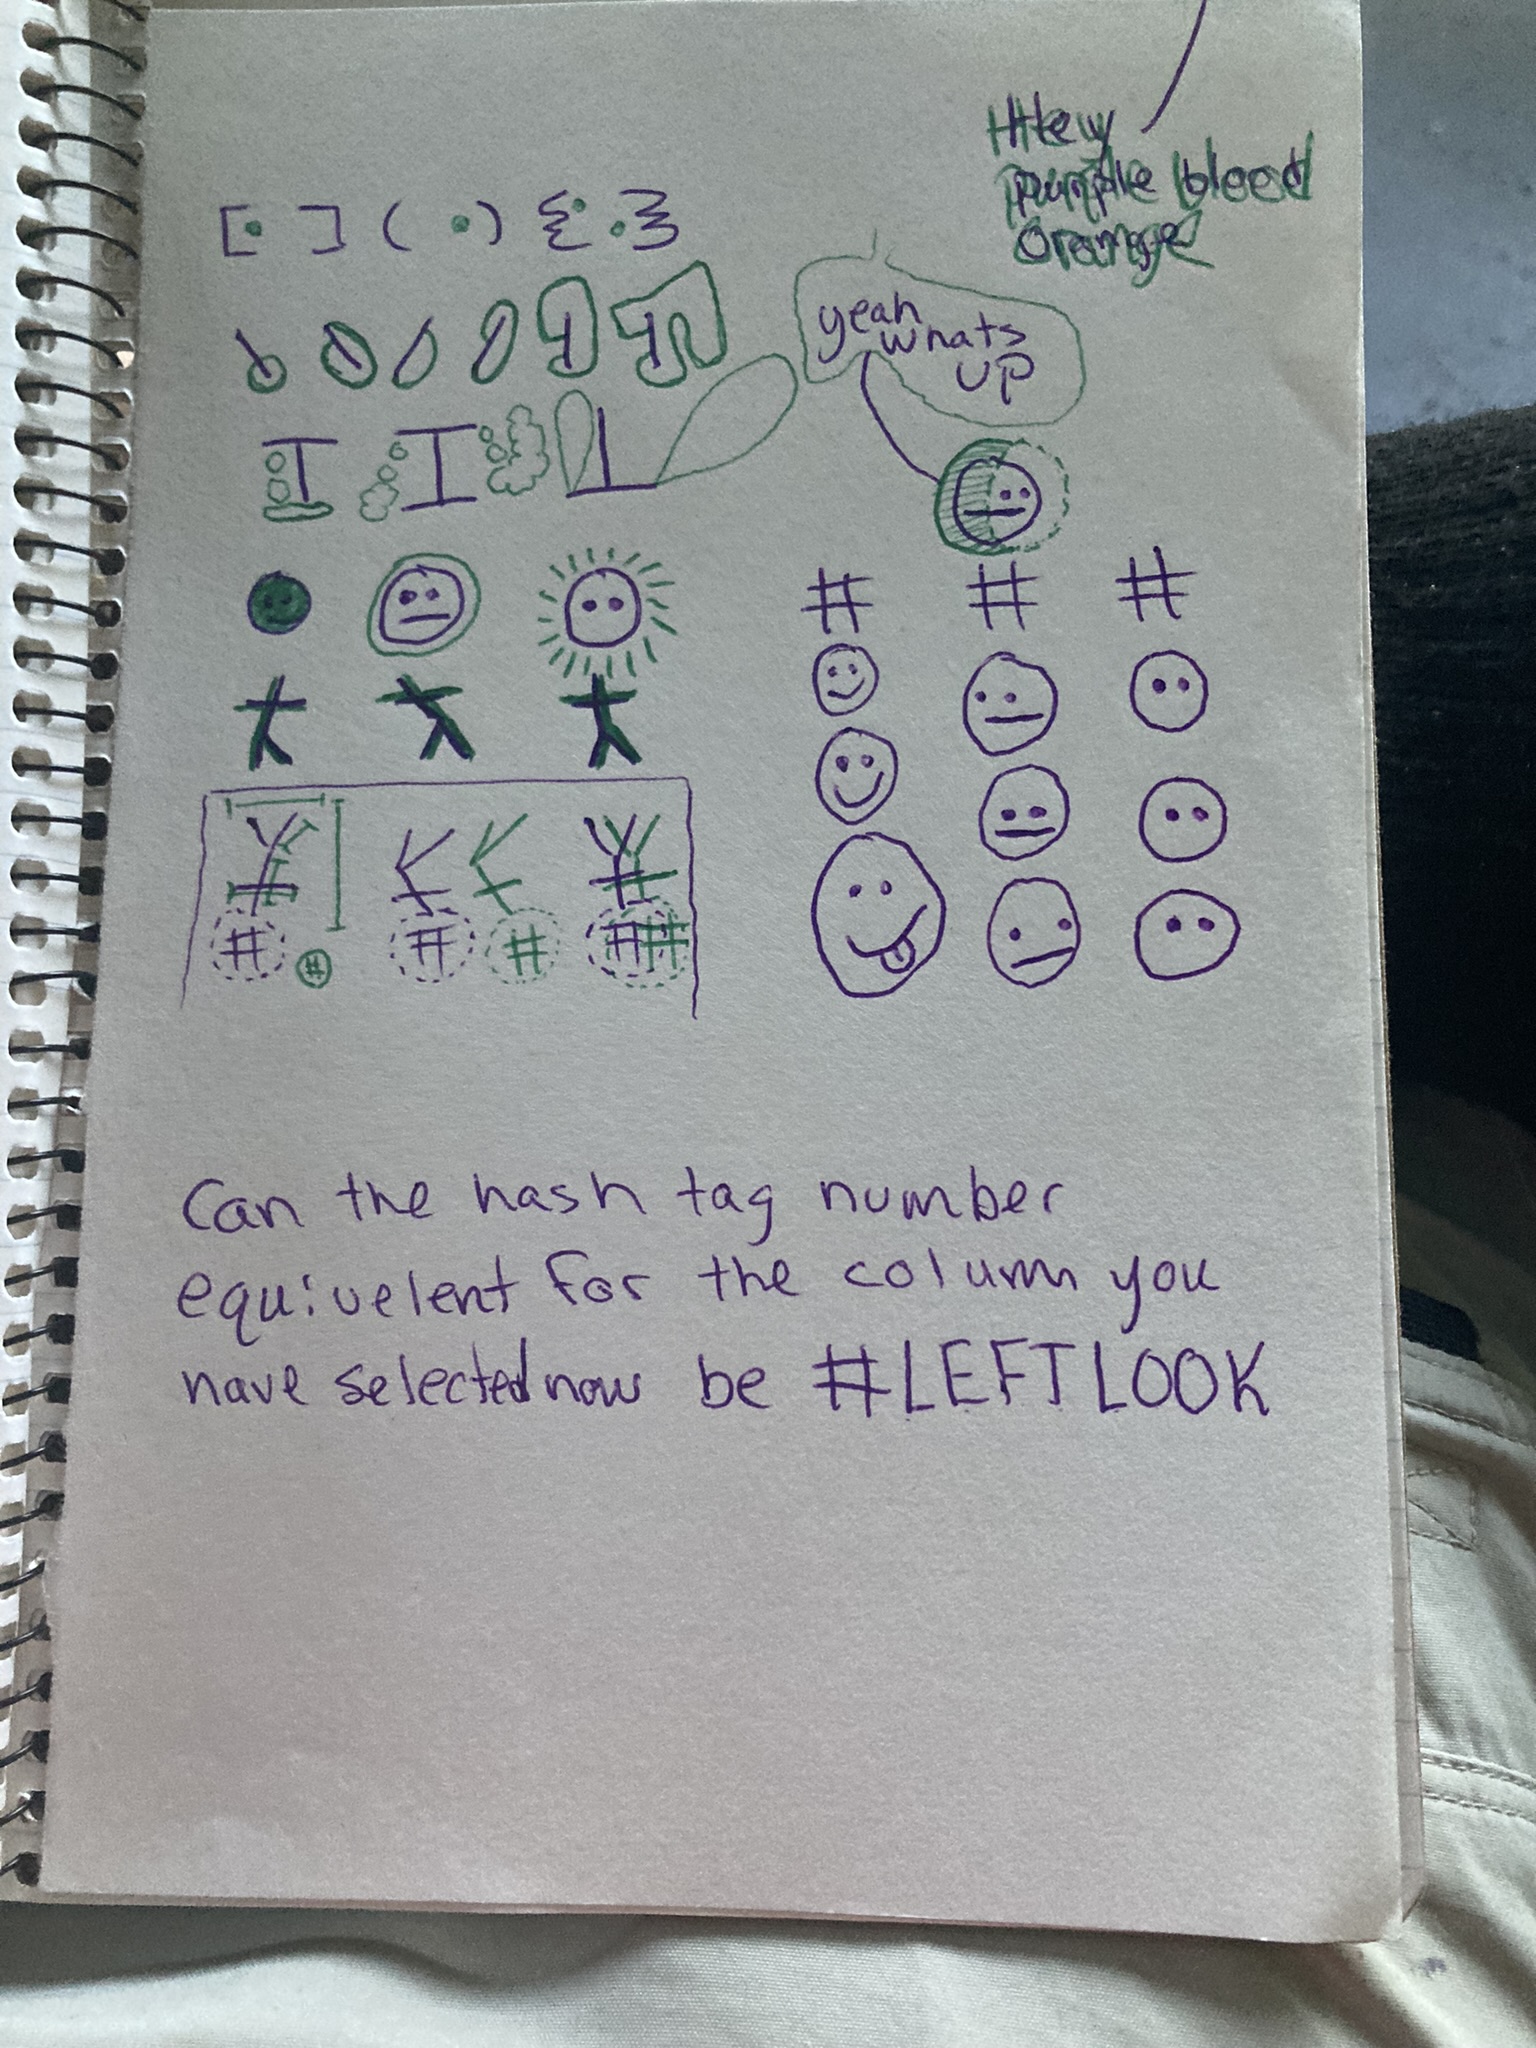 Hey
purple bleed
orange
[ . ] ( . ) { . . }
yeah
whats
up
# # #
# # # # # #
Can the hash tag number
equivelent for the column you
have selected now be #LEFTLOOK